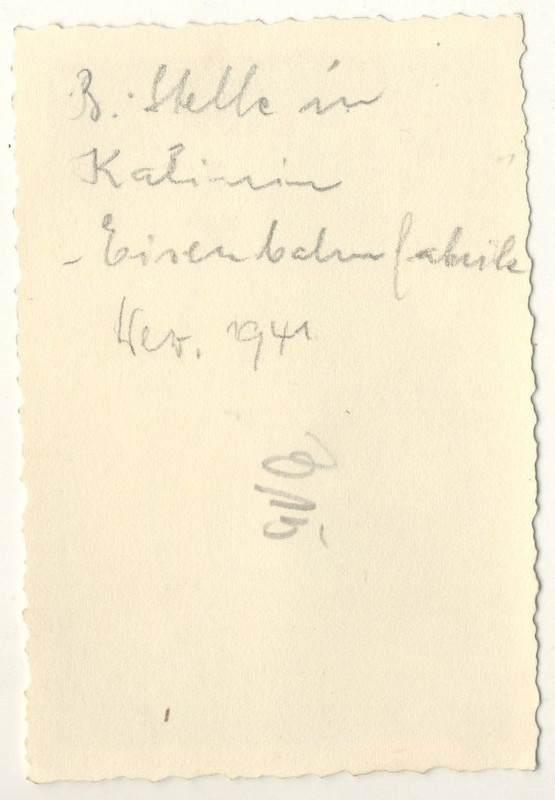 B. Stelle in
Kalinin
- Eisenbahnfabrik
Nov. 1941